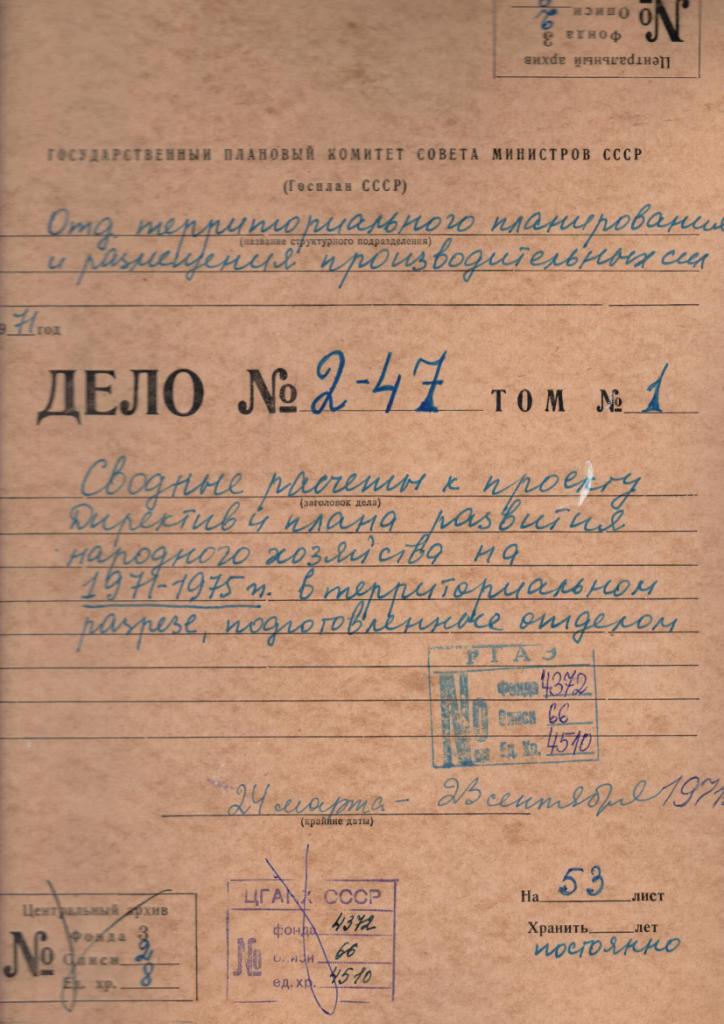 Центральный архив
Фонда 3
Описи
№
ГОСУДАРСТВЕННЫЙ ПЛАНОВЫЙ КОМИТЕТ СОВЕТА МИНИСТРОВ СССР
(Госплан СССР)
Отд территориального планирования
(название структурного подразделения)
и размещения производительных сил
971 год
ДЕЛО № 2-47 ТОМ № 1
Сводные расчеты к проекту
(заголовок дела)
Директив и плана развития
народного хозяйства на
1971-1975 гг. в территориальном
разрезе, подготовленные отделом
РГАЭ
№ Фонда 4372
Описи 66
Ед. Хр. 4510
24 марта - 23 сентября 1971
(крайние даты)
На 53 лист
Хранить лет
постоянно
Центральный архив
Фонда 3
№ Описи 2
Ед. хр. 8
ЦГАНХ СССР
фонда 4372
№ описи 66
ед. хр. 4510